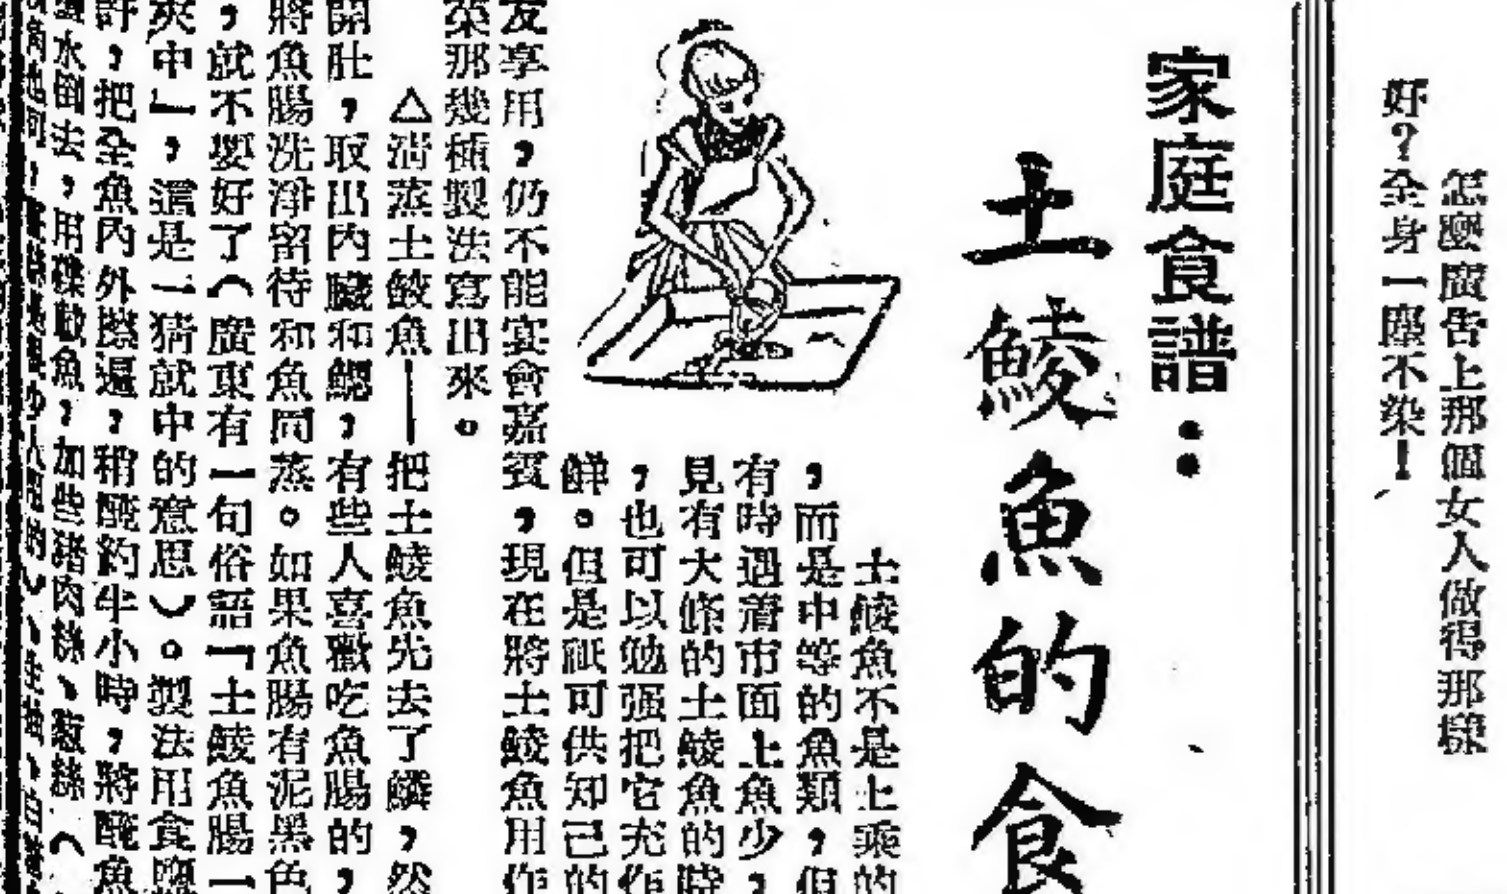 怎麼廣告上那個女人做得那樣
好？全身一塵不染！
家庭食譜：
土鯪魚的食
土鯪魚不是上乘的
，而是中等的魚類，但
有時遇着市面上魚少，
見有大條的土鯪魚的時
，也可以勉强把它充作
鮮。但是祇可供知己的
友享用，仍不能宴會嘉賓，現在將土鯪魚用作
菜那幾種製法寫出來。
△清蒸土鯪魚——把土鯪魚先去了鱗，然
開肚，取出內臟和鰓，有些人喜歡吃魚腸的，
將魚腸洗淨留待和魚同蒸。如果魚腸有泥黑色
，就不要好了（廣東有一句俗語「土鯪魚腸一
夾中」，這是一猜就中的意思）。製法用食鹽
許，把全魚內外擦遍，稍醃約半小時，將醃魚
水倒去，用碟載魚，加些豬肉絲、葱絲（